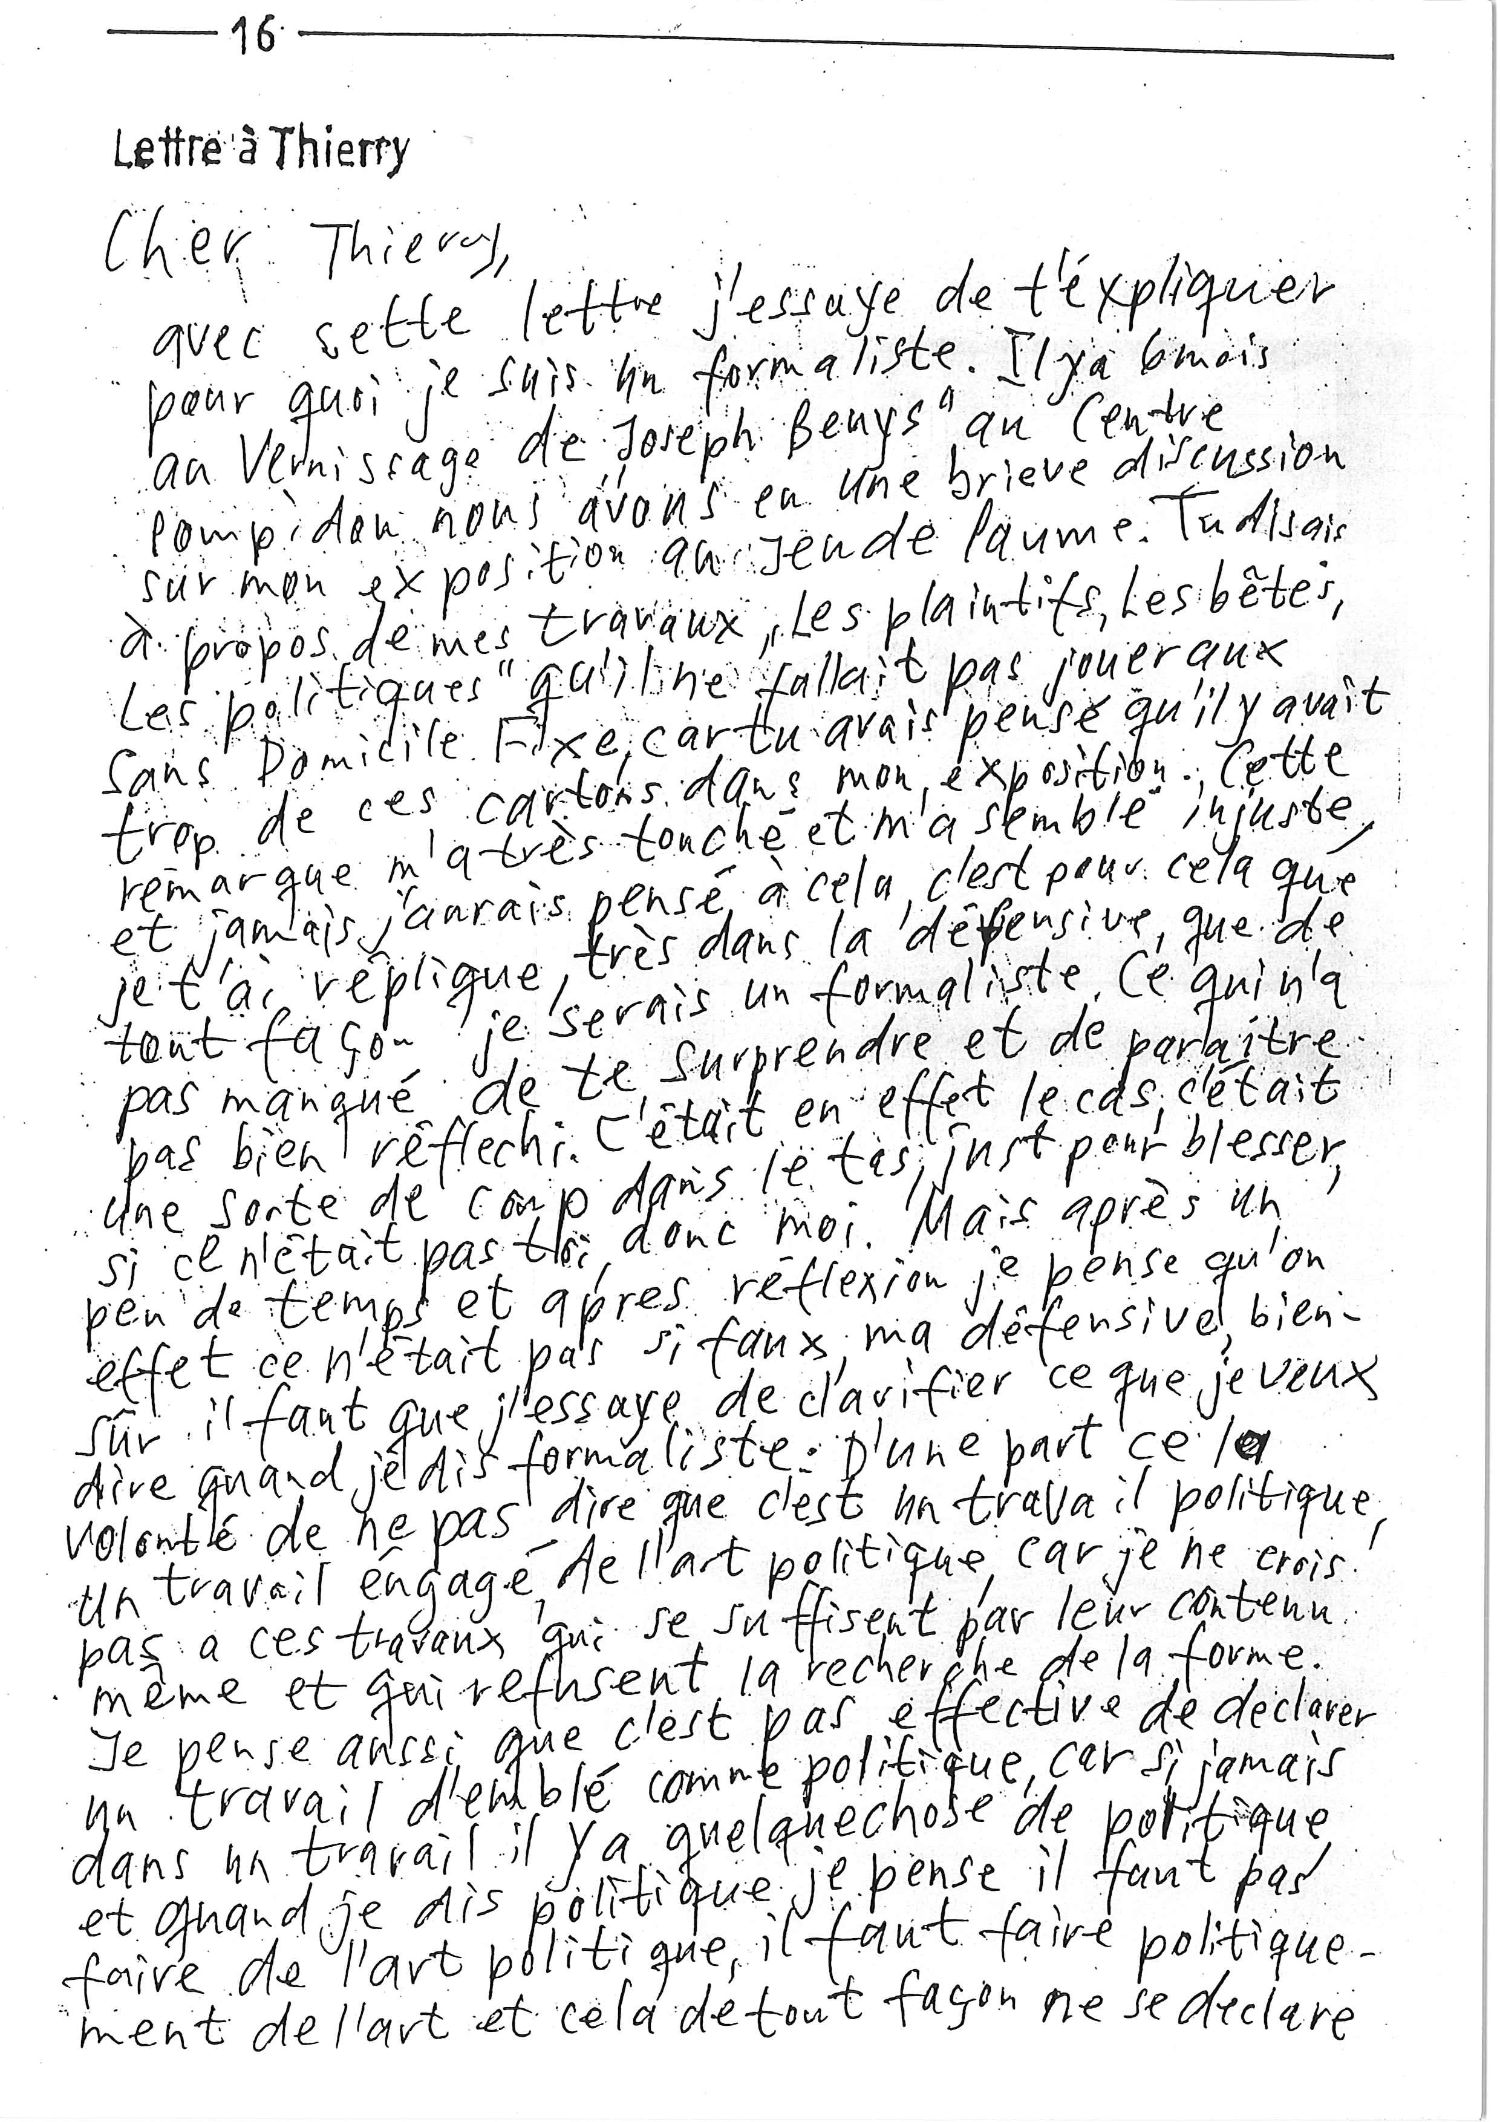 16
Lettre à Thierry
Cher Thierry,
avec cette lettre j'essaye de t'éxpliquer
pour quoi je suis un formaliste. Il y a 6 mois
au Vernissage de Joseph Beuys" au Centre
Pompidou nous avons eu une brieve discussion
sur mon exposition au Jeu de Paume. Tu disais
à propos de mes travaux „Les plaintifs, Les bêtes,
Les politiques" qu'il ne fallait pas jouer aux
Sans Domicile Fixe, car tu avais pensé qu'il y avait
trop de ces cartons dans mon exposition. Cette
remarque m'a très touché et m'a semblé injuste,
et jamais j'aurais pensé à cela, c'est pour cela que
je t'ai réplique, très dans la défensive, que de
tout façon je serais un formaliste. Ce qui n'a
pas manqué de te surprendre et de paraitre
pas bien réflechi. C'était en effet le cas, c'était
une sorte de coup dans le tas, just pour blesser,
si ce n'était pas toi, donc moi. Mais après un
peu de temps et apres réflexion je pense qu'on
effet ce n'était pas si faux, ma défensive, bien-
sûr il faut que j'essaye de clarifier ce que je veux
dire quand je dis formaliste: D'une part ce la
volonté de ne pas dire que c'est un travail politique,
un travail éngagé, de l'art politique, car je ne crois
pas a ces travaux qui se suffisent par leur contenu
même et qui refusent la recherche de la forme.
Je pense aussi que c'est pas effective de declarer
un travail d'emblé comme politique, car si jamais
dans un travail il y a quelquechose de politique
et quand je dis politique je pense il faut pas
faire de l'art politique, il faut faire politique-
ment de l'art et cela de tout façon ne se declare